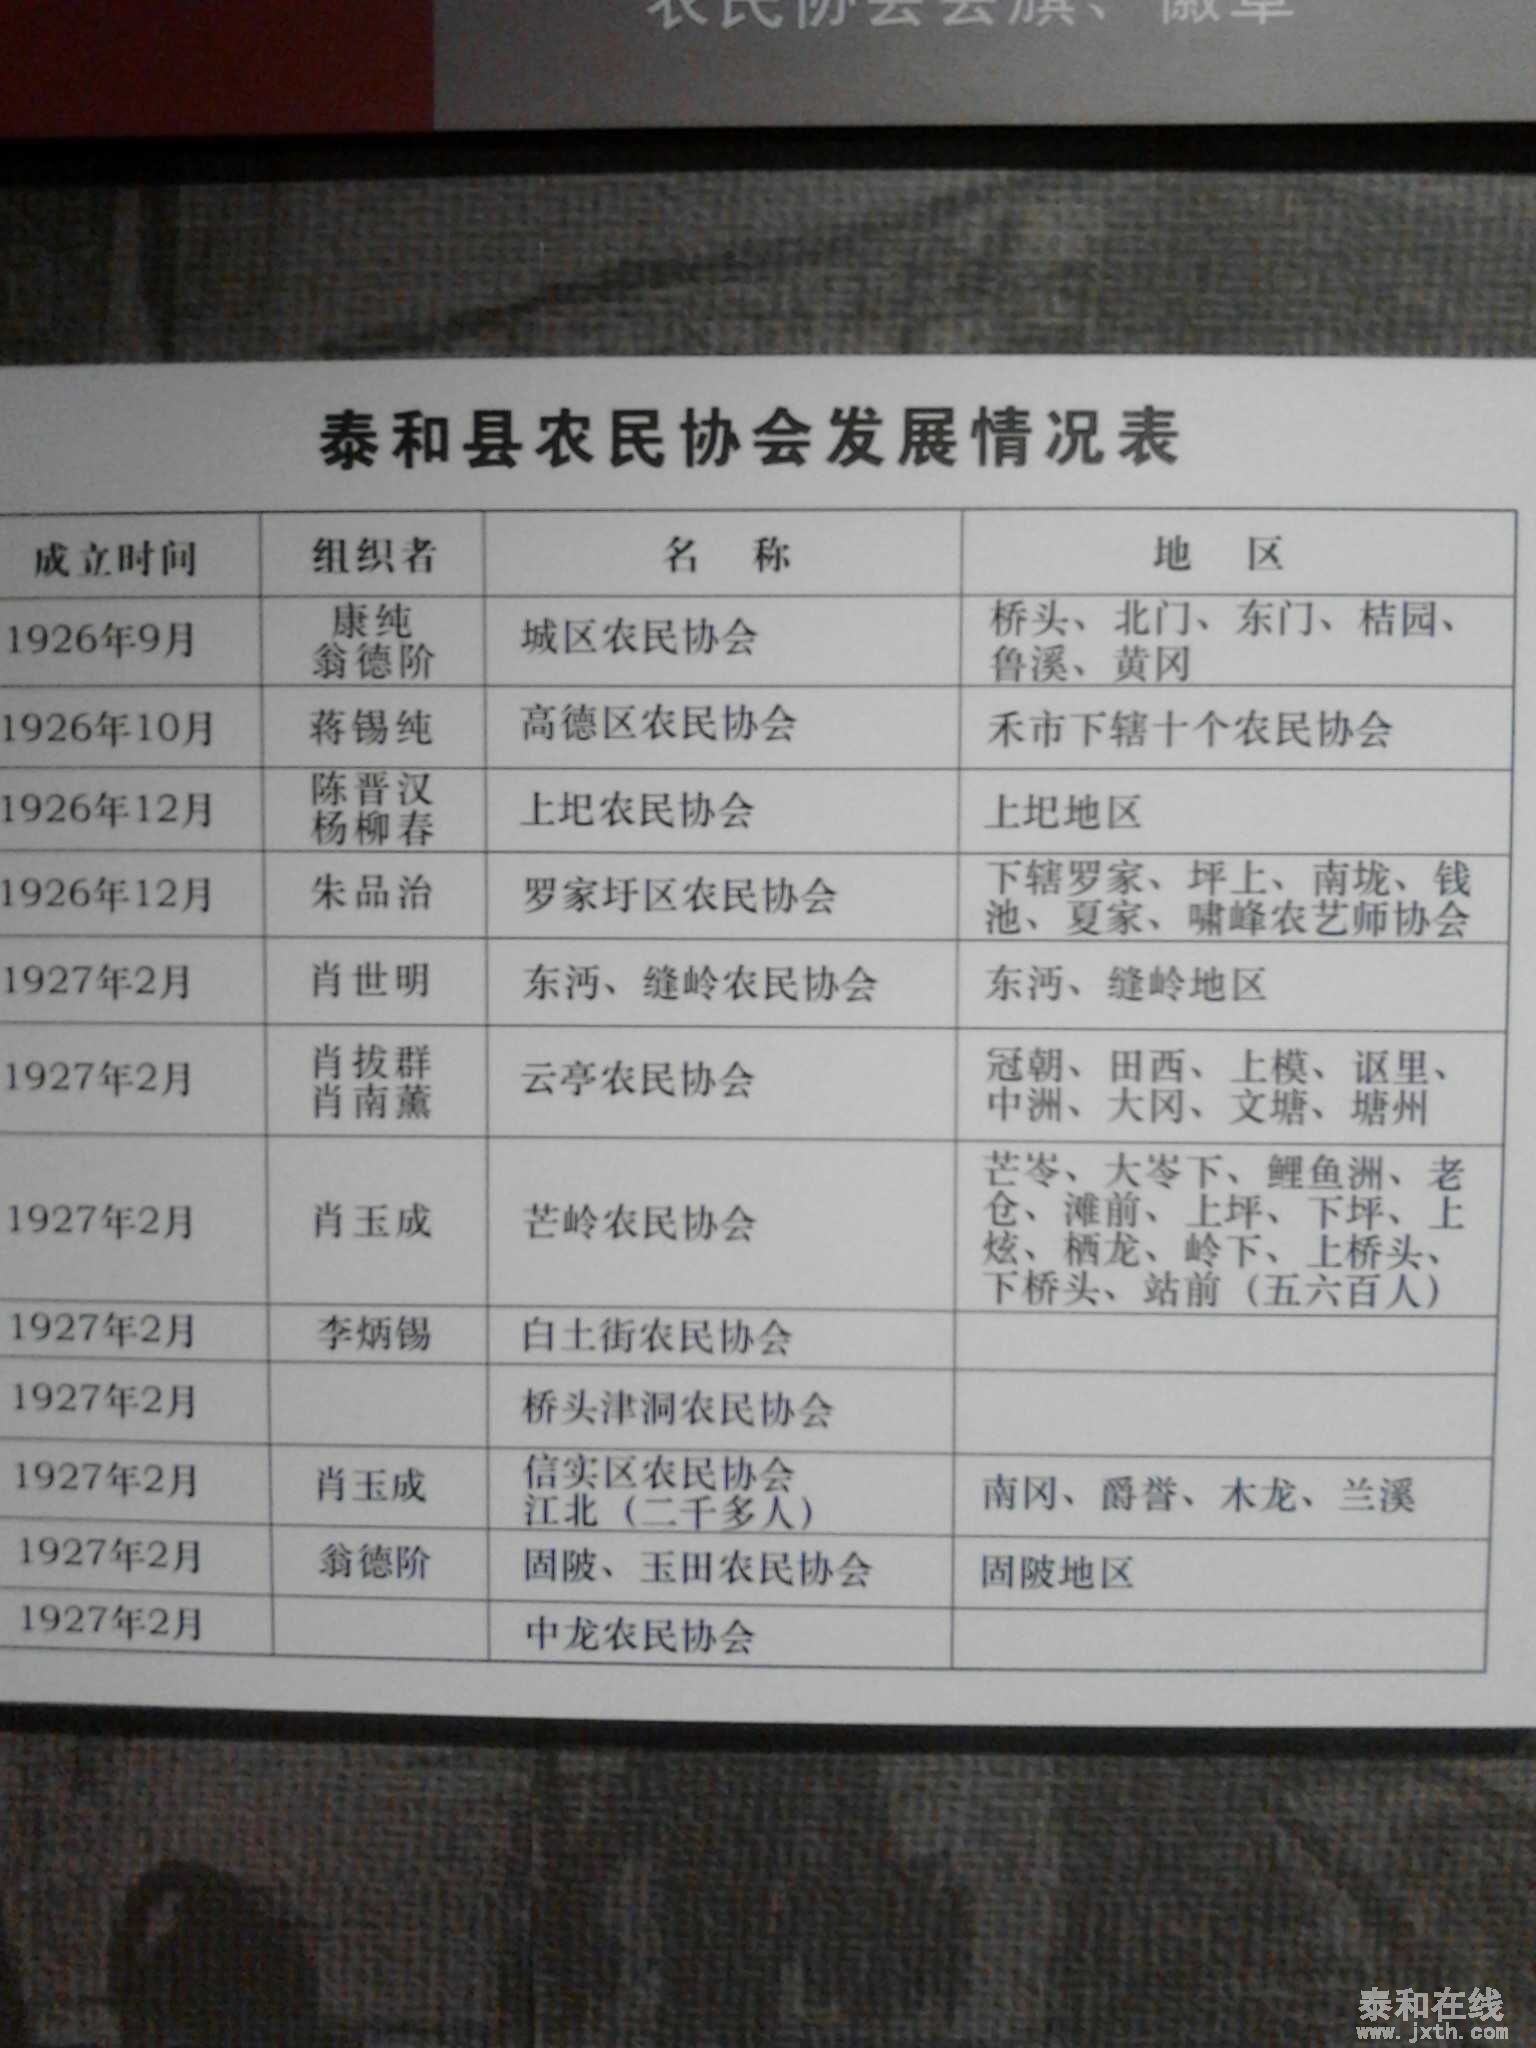 农民协会会旗、徽章
泰和县农民协会发展情况表
成立时间 组织者 名 称 地 区
1926年9月 康纯 翁德阶 城区农民协会 桥头、北门、东门、桔园、
鲁溪、黄冈
1926年10月 蒋锡纯 高德区农民协会 禾市下辖十个农民协会
1926年12月 陈晋汉 杨柳春 上圯农民协会 上圯地区
1926年12月 朱品治 罗家圩区农民协会 下辖罗家、坪上、南垅、钱
池、夏家、啸峰农艺师协会
1927年2月 肖世明 东沔、缝岭农民协会 东沔、缝岭地区
1927年2月 肖拔群 肖南薰 云亭农民协会 冠朝、田西、上模、讴里、
中洲、大冈、文塘、塘州
1927年2月 肖玉成 芒岭农民协会 芒岺、大岺下、鲤鱼洲、老
仓、滩前、上坪、下坪、上
炫、栖龙、岭下、上桥头、
下桥头、站前（五六百人）
1927年2月 李炳锡 白土街农民协会
1927年2月 桥头津洞农民协会
1927年2月 肖玉成 信实区农民协会
江北（二千多人） 南冈、爵誉、木龙、兰溪
1927年2月 翁德阶 固陂、玉田农民协会 固陂地区
1927年2月 中龙农民协会
泰和在线
www.jxth.com